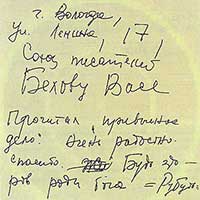 г. Вологда,
ул. Ленина, 17,
Союз писателей
Белову Васе
Прочитал "Привычное
дело". Очень радостно.
Спасибо. Будь здо-
ров ради бога =Рубцов